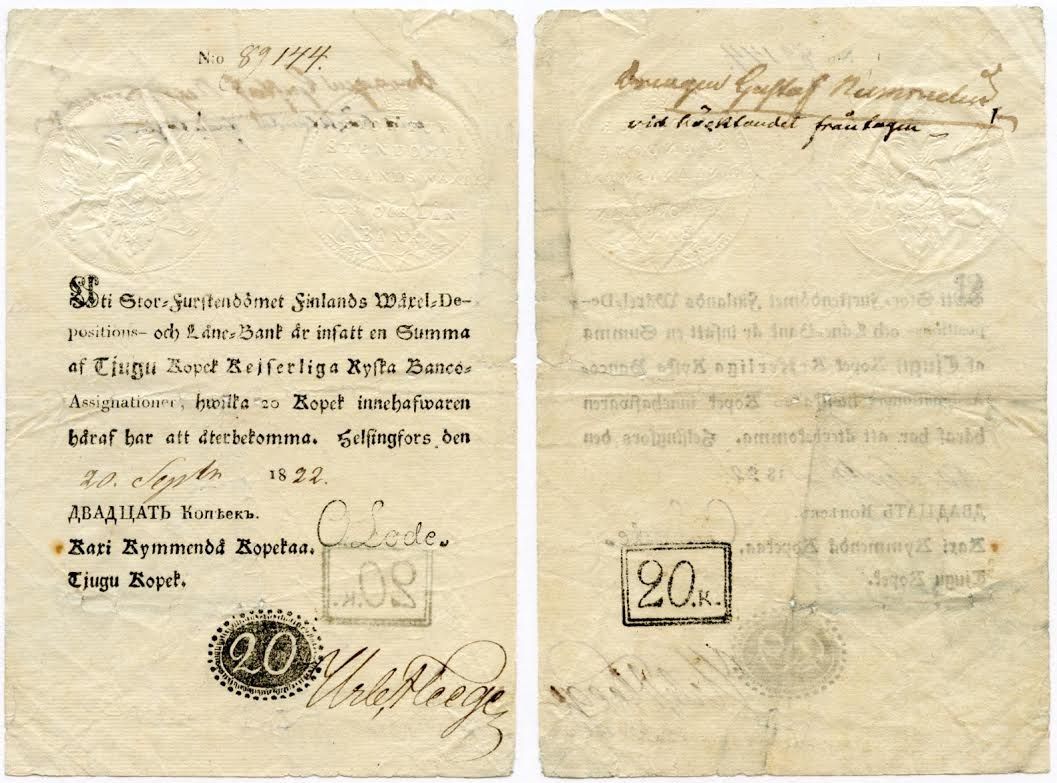 N:o 89144.
STOR FURST
FINLANDS WÄXEL
DEP. OCH LÅNE
BANK
Uti Stor-Furstendömet Finlands Wäxel-De-
positions- och Låne-Bank är insatt en Summa
af Tjugu Kopek Kejserliga Ryska Banco-
Assignationer, hwilka 20 Kopek innehafwaren
häraf har att återbekomma. Helsingfors den
20. Septr 1822.
ДВАДЦАТЬ Копѣекъ.
Kaxi Kymmendä Kopekaa.
Tjugu Kopek.
C Lode.
20
Gustaf
vid från tagen
20.к.